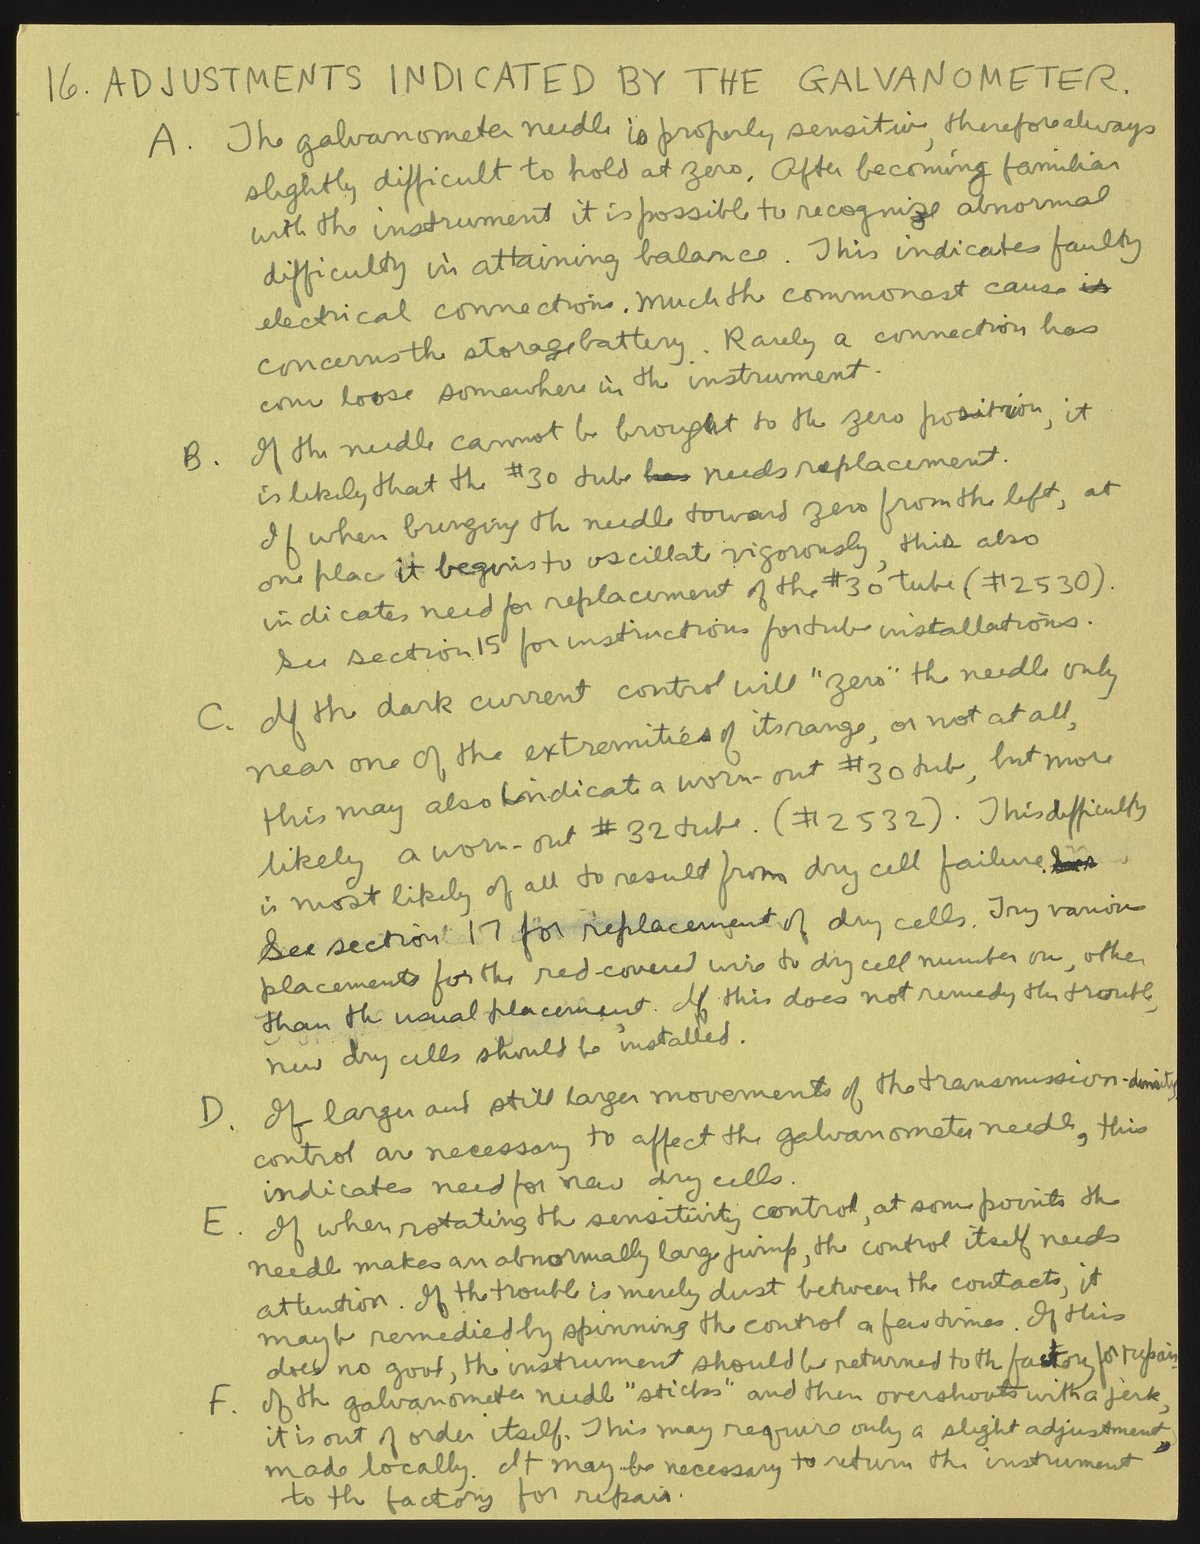 16. ADJUSTMENTS INDICATED BY THE GALVANOMETER.
A. The galvanometer needle is properly sensitive, therefore always
slightly difficult to hold at zero. After becoming familiar
with the instrument it is possible to recognize abnormal
difficulty in attaining balance. This indicates faulty
electrical connections. Much the commonest cause is
concerns the storage battery. Rarely a connection has
come loose somewhere in the instrument.
B. If the needle cannot be brought to the zero position, it
is likely that the #30 tube has needs replacement.
If when bringing the needle toward zero from the left, at
one place it begins to oscillate vigorously, this also
indicates need for replacement of the #30 tube (#2530).
See section 15 for instructions for tube installations.
C. If the dark current control will "zero" the needle only
near one of the extremities of its range, or not at all,
this may also indicate a worn-out #30 tube, but more
likely a worn-out #32 tube. (#2532). This difficulty
is most likely of all to result from dry cell failure. See
See section 17 for replacement of dry cells. Try various
placements for the red-covered wire to dry cell number one, other
than the usual placement. If this does not remedy the trouble,
new dry cells should be installed.
D. If larger and still larger movements of the transmission-density
control are necessary to affect the galvanometer needle, this
indicates need for new dry cells.
E. If when rotating the sensitivity control, at some points the
needle makes an abnormally large jump, the control itself needs
attention. If the trouble is merely dust between the contacts, it
may be remedied by spinning the control a few times. If this
does no good, the instrument should be returned to the factory for repair.
F. If the galvanometer needle "sticks" and then overshoots with a jerk,
it is out of order itself. This may require only a slight adjustment,
made locally. It may be necessary to return the instrument
to the factory for repair.